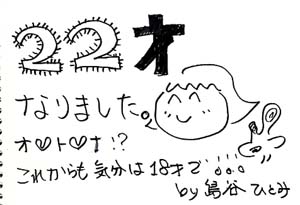 22才
なりました。
オ♡ト♡ナ!?
これからも気分は18才で...
by 島谷ひとみ